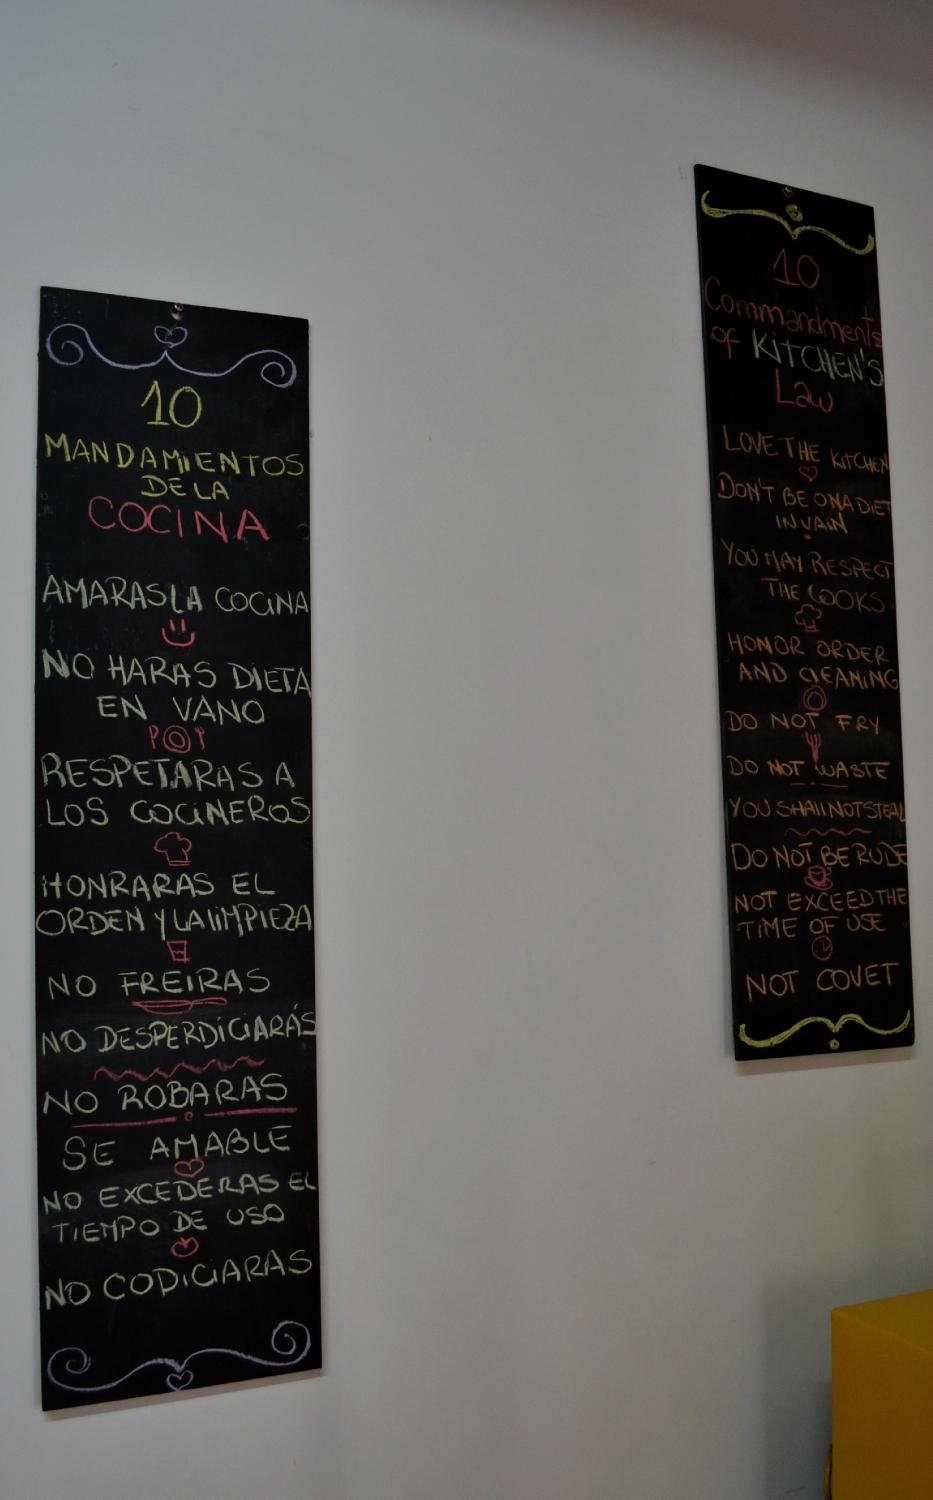 10
MANDAMIENTOS
DE LA
COCINA
AMARAS LA COCINA
NO HARAS DIETA
EN VANO
RESPETARAS A
LOS COCINEROS
HONRARAS EL
ORDEN Y LA lIMPIEZA
NO FREIRAS
NO DESPERDICIARÁS
NO ROBARAS
SE AMABLE
NO EXCEDERAS EL
TIEMPO DE USO
NO CODICIARAS
10
Commandments
of KITCHEN'S
Law
LOVE THE KITCHEN
DON'T BE ON A DIET
IN VAIN
YOU MAY RESPECT
THE COOKS
HONOR ORDER
AND ClEANING
DO NOT FRY
DO NOT WASTE
YOU SHAll NOT STEAL
DO NOT BE RUDE
NOT EXCEED THE
TIME OF USE
NOT COVET